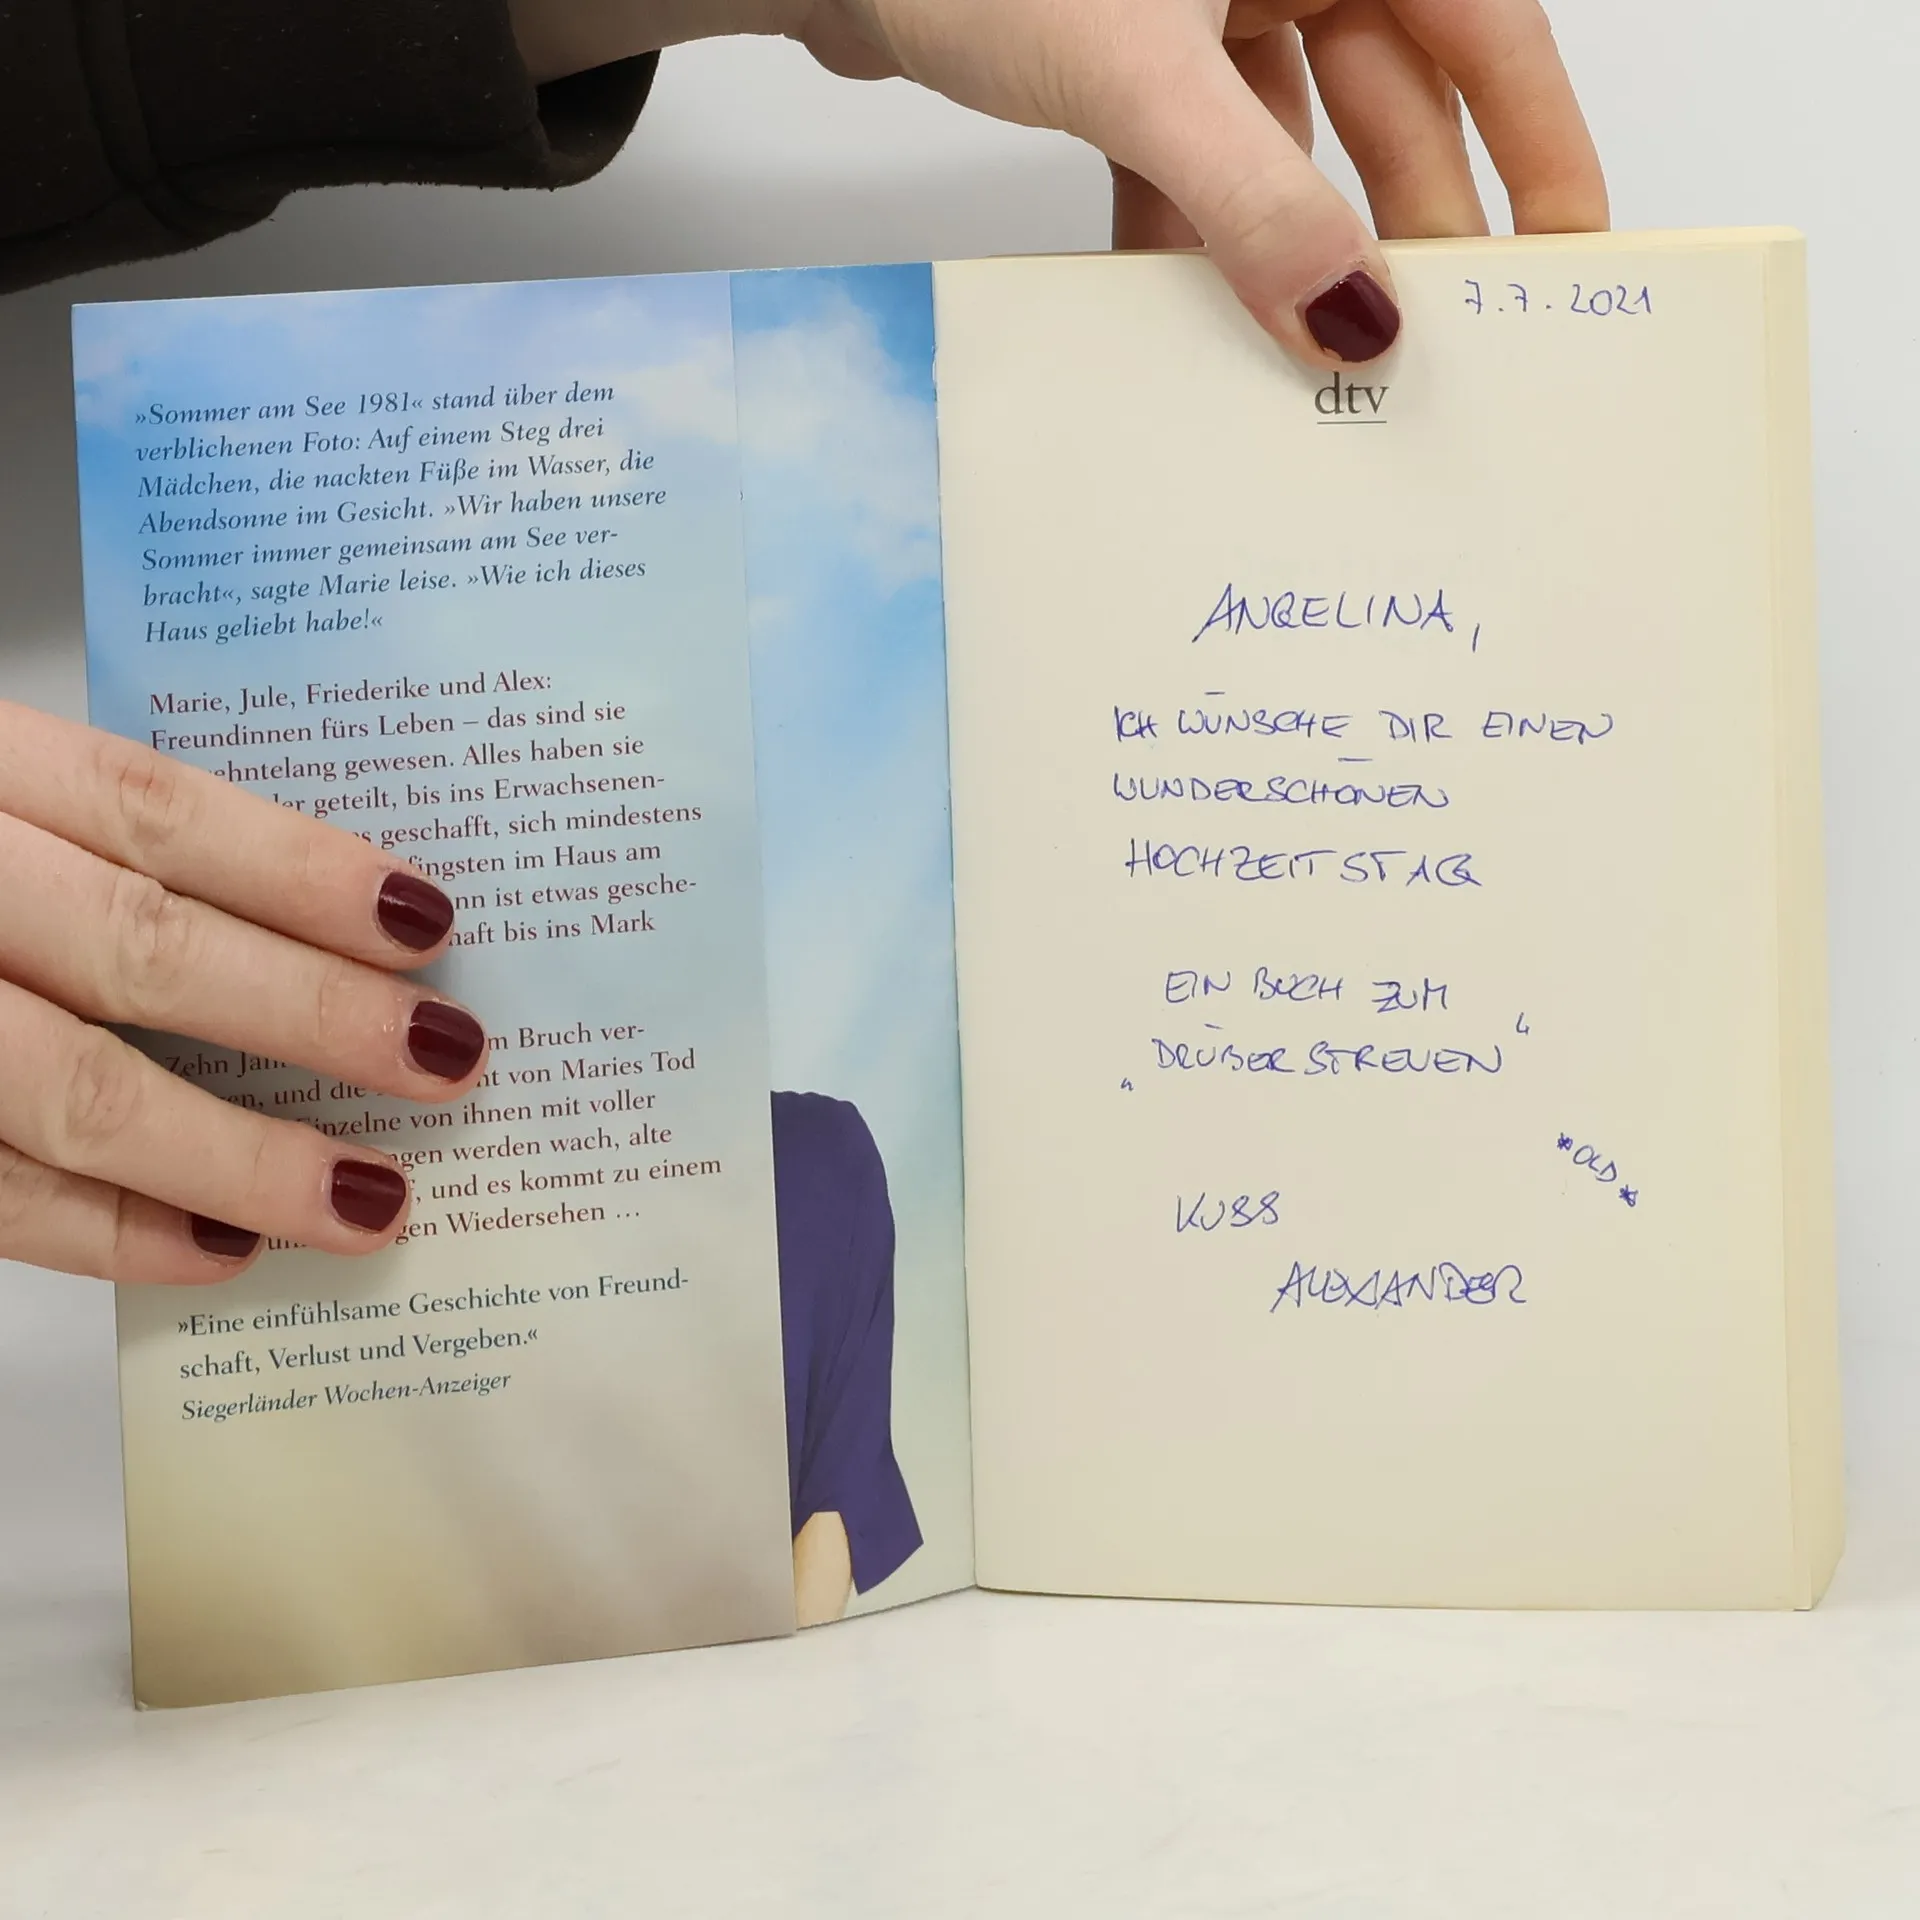 »Sommer am See 1981« stand über dem
verblichenen Foto: Auf einem Steg drei
Mädchen, die nackten Füße im Wasser, die
Abendsonne im Gesicht. »Wir haben unsere
Sommer immer gemeinsam am See ver-
bracht«, sagte Marie leise. »Wie ich dieses
Haus geliebt habe!«
Marie, Jule, Friederike und Alex:
Freundinnen fürs Leben – das sind sie
gewesen. Alles haben sie
geteilt, bis ins Erwachsenen-
geschafft, sich mindestens
im Haus am
ist etwas gesche-
bis ins Mark
Zehn
Bruch ver-
und die von Maries Tod
von ihnen mit voller
werden wach, alte
und es kommt zu einem
Wiedersehen …
»Eine einfühlsame Geschichte von Freund-
schaft, Verlust und Vergeben.«
Siegerländer Wochen-Anzeiger
7.7.2021
dtv
ANGELINA,
ICH WÜNSCHE DIR EINEN
WUNDERSCHÖNEN
HOCHZEITSTAG
EIN BUCH ZUM
"DRÜBERSTREUEN"
*OLD*
KUSS
ALEXANDER